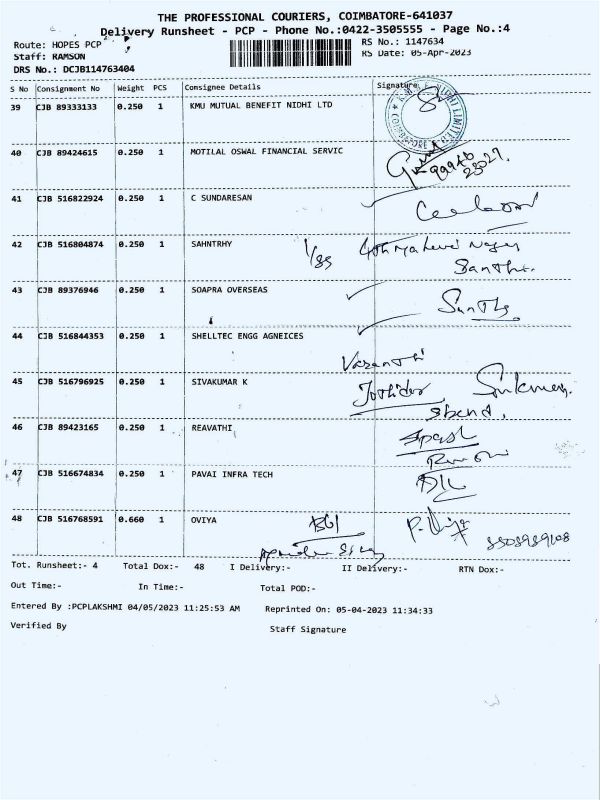 THE PROFESSIONAL COURIERS, COIMBATORE-641037
Delivery Runsheet - PCP - Phone No.:0422-3505555 - Page No.:4
Route: HOPES PCP RS No.: 1147634
Staff: RAMSON RS Date: 05-Apr-2023
DRS No.: DCJB114763404
S No Consignment No Weight PCS Consignee Details Signature
39 CJB 89333133 0.250 1 KMU MUTUAL BENEFIT NIDHI LTD
40 CJB 89424615 0.250 1 MOTILAL OSWAL FINANCIAL SERVIC
41 CJB 516822924 0.250 1 C SUNDARESAN
42 CJB 516804874 0.250 1 SAHNTRHY
Santhi.
43 CJB 89376946 0.250 1 SOAPRA OVERSEAS
44 CJB 516844353 0.250 1 SHELLTEC ENGG AGNEICES
Vasanthi
45 CJB 516796925 0.250 1 SIVAKUMAR K
46 CJB 89423165 0.250 1 REAVATHI
47 CJB 516674834 0.250 1 PAVAI INFRA TECH
48 CJB 516768591 0.660 1 OVIYA
Tot. Runsheet:- 4 Total Dox:- 48 I Delivery:- II Delivery:- RTN Dox:-
Out Time:- In Time:- Total POD:-
Entered By :PCPLAKSHMI 04/05/2023 11:25:53 AM Reprinted On: 05-04-2023 11:34:33
Verified By Staff Signature